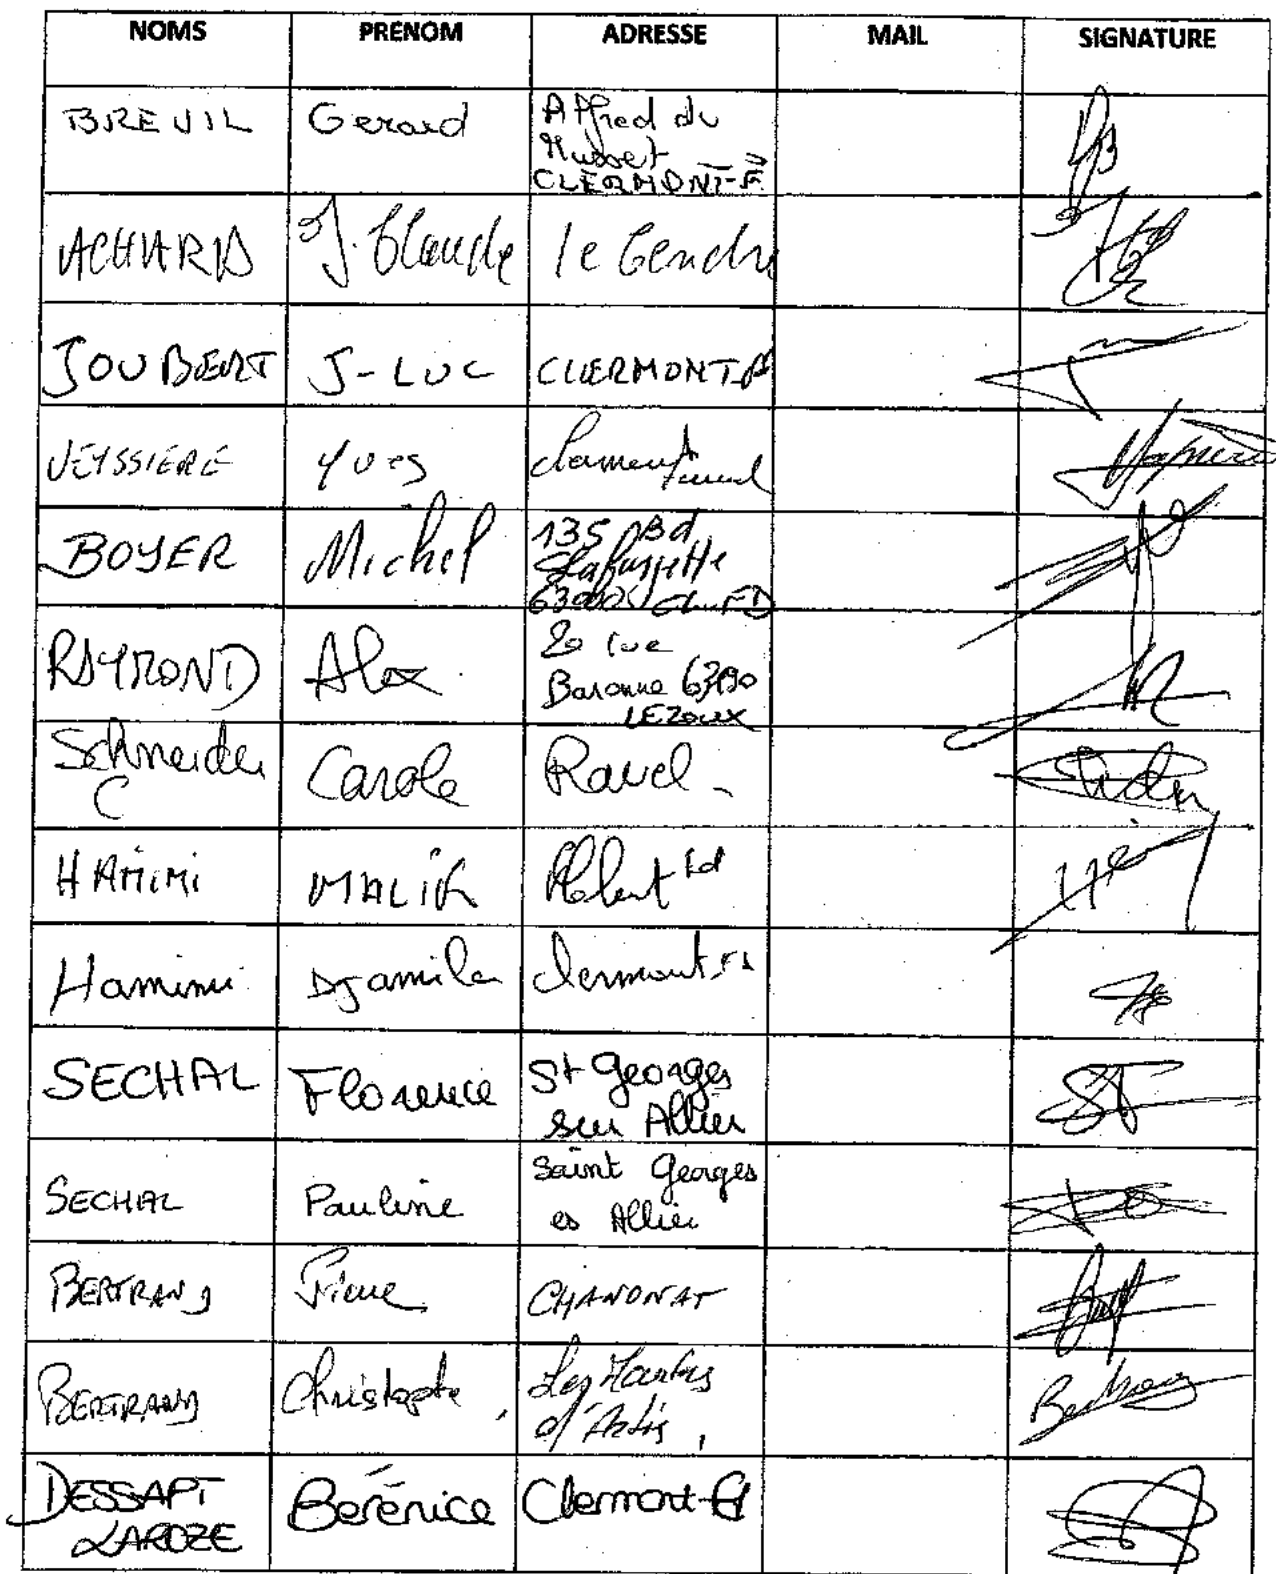 NOMS PRENOM ADRESSE MAIL SIGNATURE
BREUIL Gerard Alfred du
Musset
CLERMONT-F
ACHARD J. Claude le Cendre
JOUBERT J-LUC CLERMONT-Fd
VEYSSIERE Yves Clermont
Ferrand
BOYER Michel 135 Bd
Lafayette
63000 Cler FD
RAYMOND Alex 20 rue
Baronne 63190
LEZOUX
Schneider
C Carole Ravel -
HAMIMI MALIK
Hamimi Djamila Clermont-Fd
SECHAL Florence St Georges
sur Allier
SECHAL Pauline Saint Georges
es Allier
BERTRAND Pierre CHANONAT
BERTRAND Christophe, Les Martres
d'Artis,
DESSAPT
LAROZE Bérénice Clermont-Fd